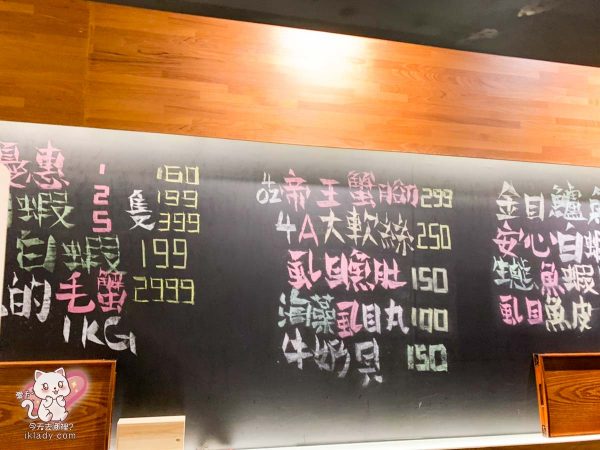 優惠 1 160
蝦 2 隻 199
5 399
白蝦 199
的毛蟹 2999
1KG
402 帝王蟹腳 299
4A大軟絲 250
虱目魚肚 150
海藻虱目丸 100
牛奶貝 150
金目鱸魚
安心白蝦
生態魚蝦
虱目魚皮
今天去哪裡?
iklady.com